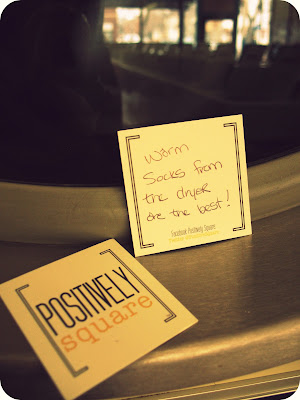 Warm
Socks from
the dryer
are the best!
Facebook Positively Square
POSITIVELY
square